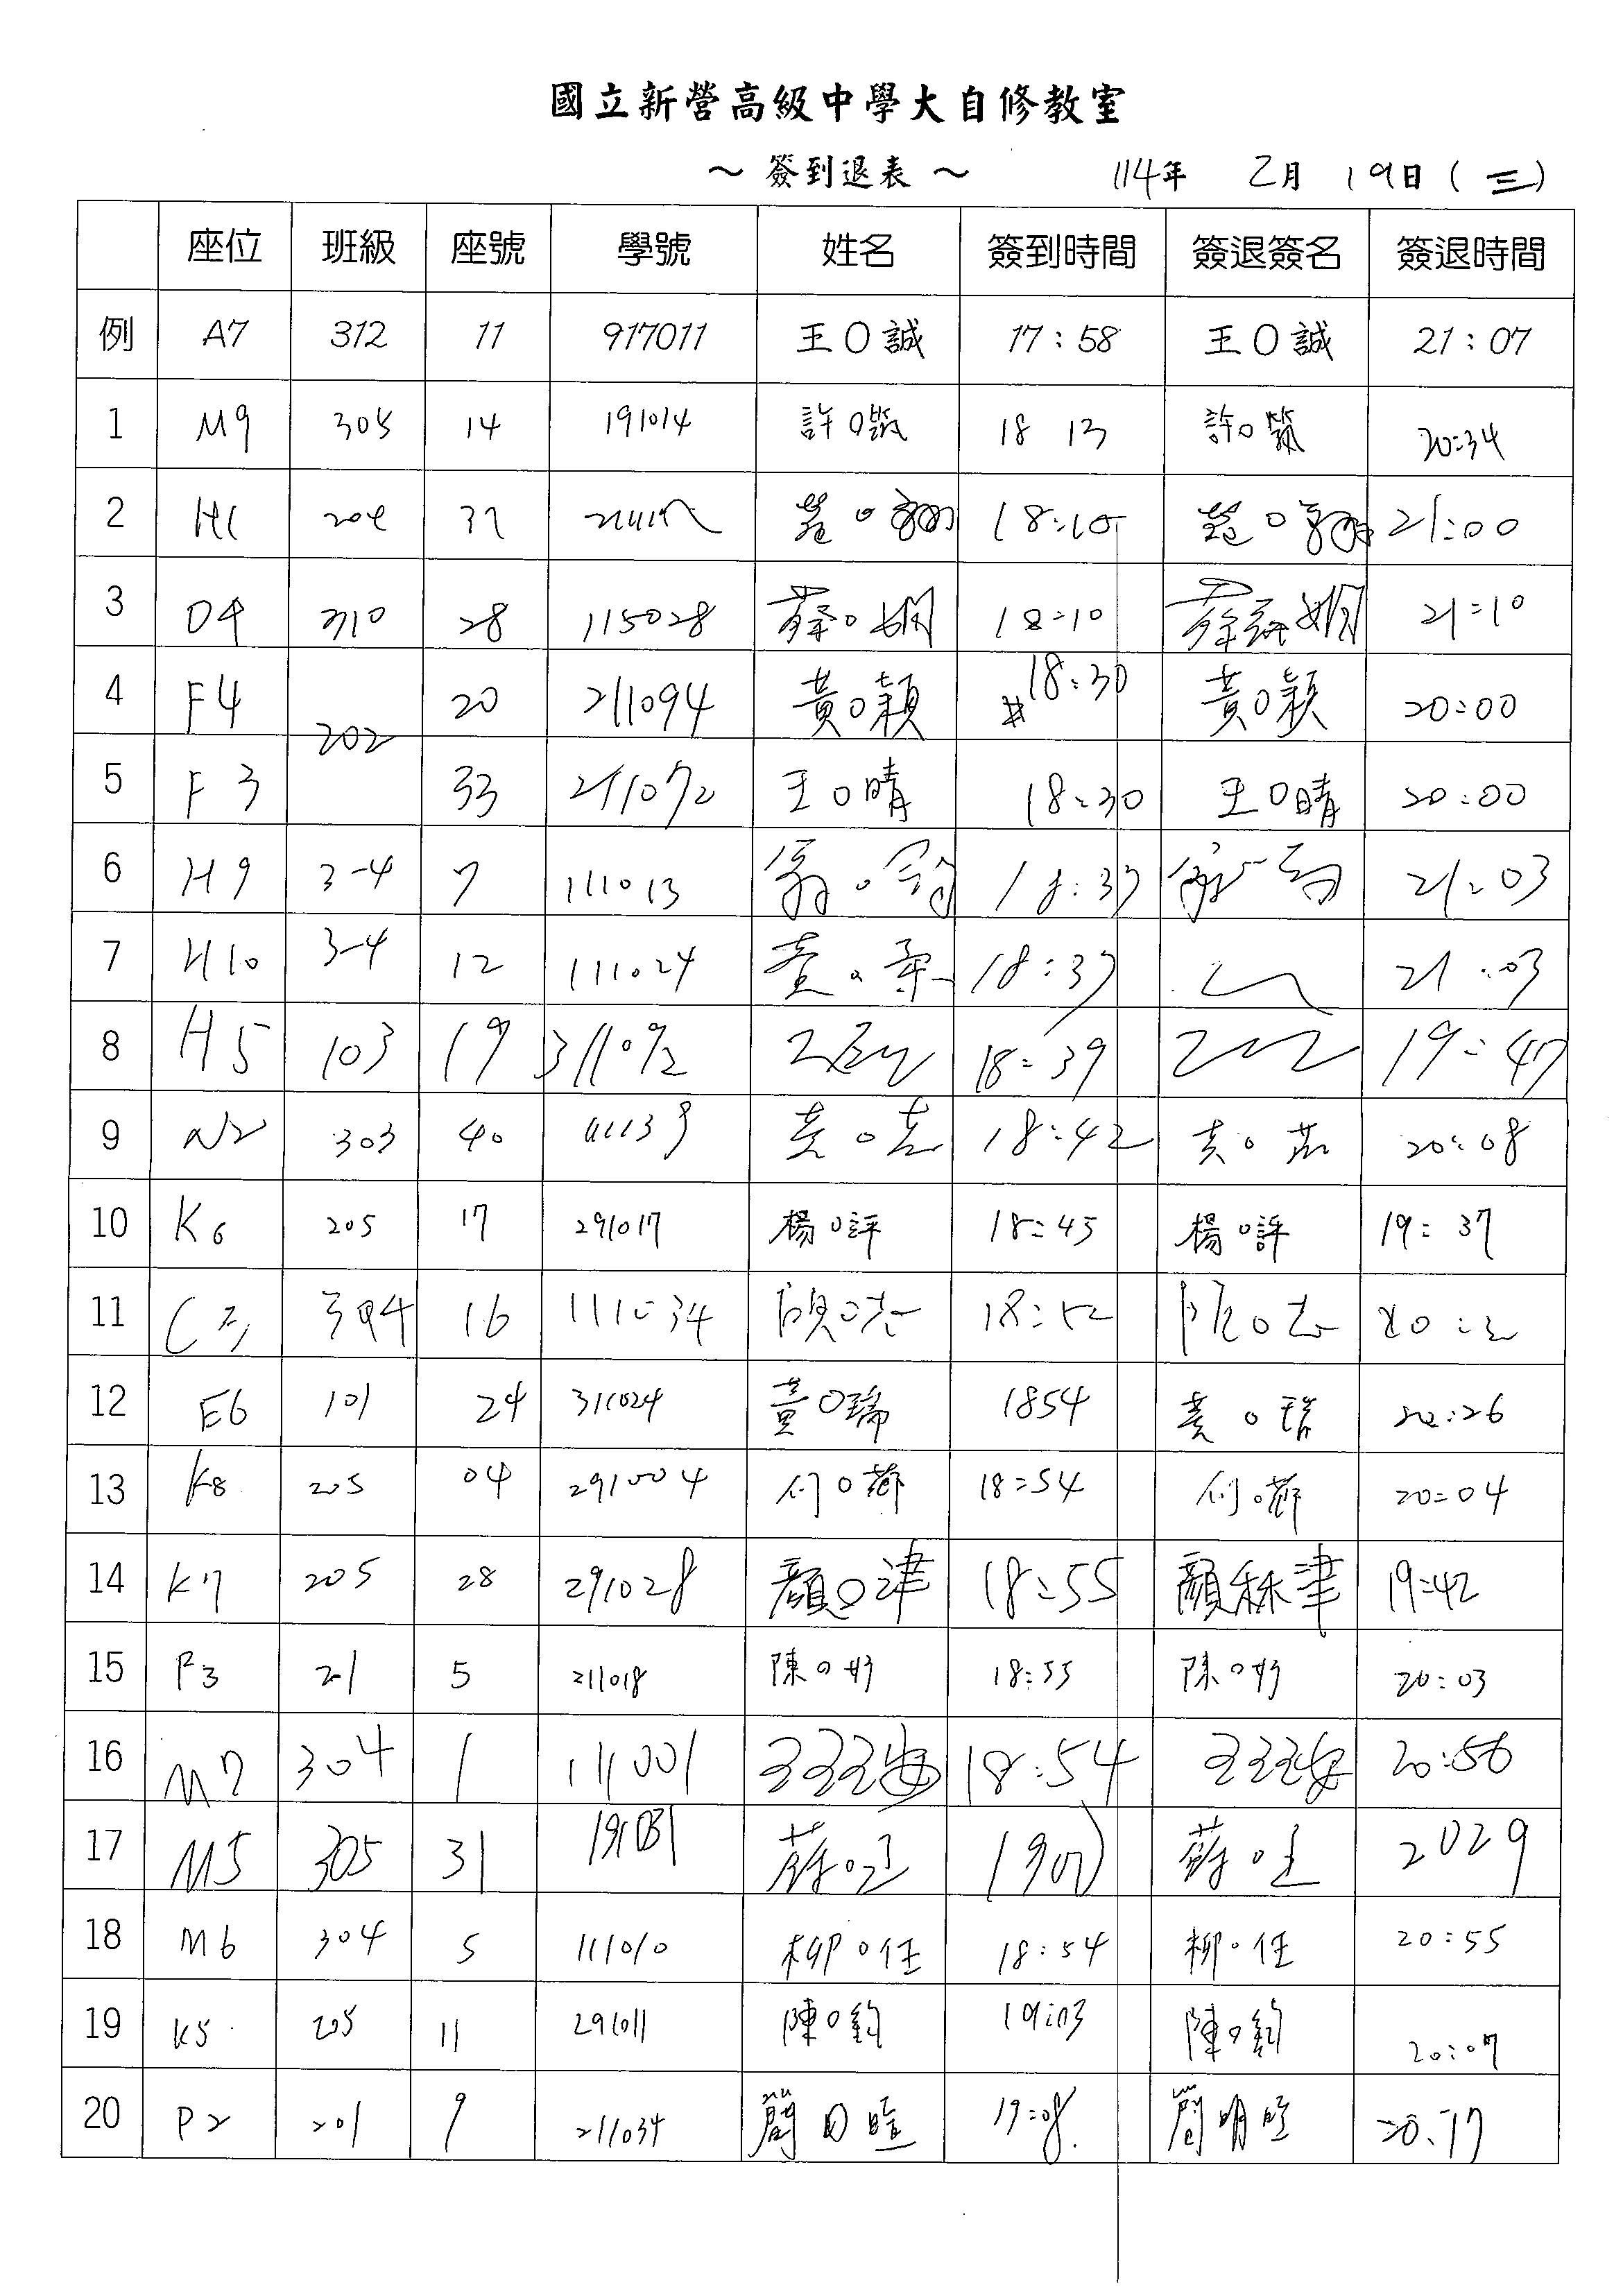 國立新營高級中學大自修教室
～ 簽到退表 ～ 114年 2月 19日 (三)
座位 班級 座號 學號 姓名 簽到時間 簽退簽名 簽退時間
例 A7 312 11 917011 王O誠 17:58 王O誠 21:07
1 M9 305 14 191014 許O 18 13 許O 20:34
2 H1 204 O 18:10 O 21:00
3 D4 310 28 115028 蔡O嫻 18:10 21:10
4 F4 202 20 211094 黃O穎 18:30 黃O穎 20:00
5 F3 33 211072 王O晴 18:30 王O晴 20:00
6 H9 3-4 7 111013 18:37 21:03
7 H10 3-4 12 111024 黃O柔 18:37 21:03
8 H5 103 19 311092 18:39 19:47
9 N2 303 40 黃O 18:42 黃O 20:08
10 K6 205 17 291017 楊O評 18:45 楊O評 19:37
11 304 16 111034 18:52
12 E6 101 24 311024 黃O瑞 1854 黃O瑞 20:26
13 K8 205 04 291004 何O 18:54 何O 20:04
14 K7 205 28 291028 顏O津 18:55 顏秝津 19:42
15 P3 21 5 211018 陳O妤 18:55 陳O妤 20:03
16 M7 304 1 111001 18:54 20:56
17 M5 305 31 191031 蘇O 1907 蘇O 2029
18 M6 304 5 111010 柳O任 18:54 柳O任 20:55
19 K5 205 11 291011 陳O鈞 19:03 陳O鈞 20:07
20 P2 201 9 211034 簡O暄 19:08 簡明暄 20:17